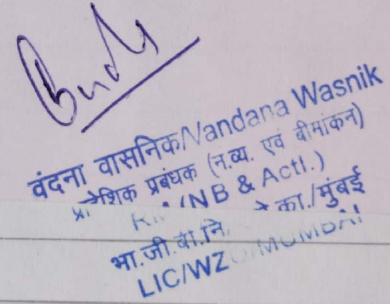 वंदना वासनिक/Vandana Wasnik
प्रबंधक (न.व्य. एवं बीमांकन)
(NB & Actl.)
भा.जी.बी.नि. का./मुंबई
LIC/WZ MUMBAI